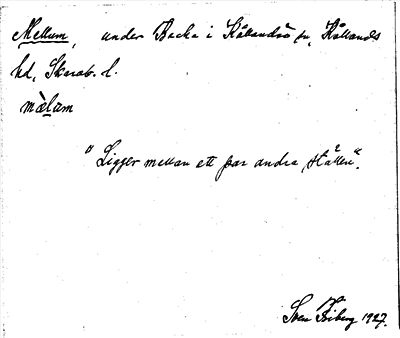 Mellum, under Backa i Kållandsö sn, Kållands
hd, Skarab. l.
mèlum
"Ligger mellan ett par andra ställen".
Sven Friberg 1927.